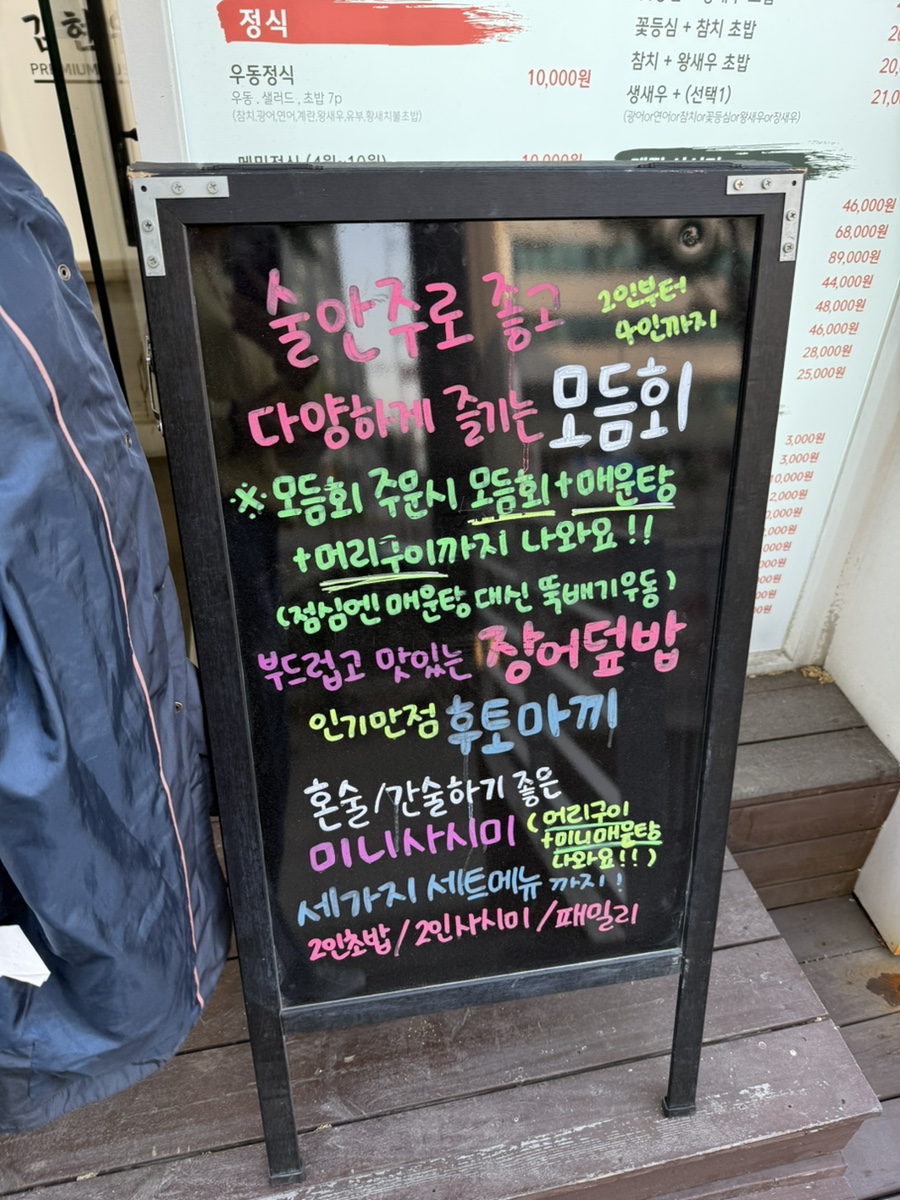 정식
우동정식 10,000원
우동 . 샐러드 , 초밥 7p
(참치,광어,연어,계란,왕새우,유부,황새치불초밥)
메밀정식 (4월~10월) 10,000원
꽃등심 + 참치 초밥
참치 + 왕새우 초밥
생새우 + (선택1)
(광어or연어or참치or꽃등심or왕새우or장새우)
46,000원
68,000원
89,000원
44,000원
48,000원
46,000원
28,000원
25,000원
3,000원
3,000원
술안주로 좋고 2인부터
4인까지
다양하게 즐기는 모듬회
※모듬회 주문시 모듬회+매운탕
+머리구이까지 나와요!!
(점심엔 매운탕 대신 뚝배기우동)
부드럽고 맛있는 장어덮밥
인기만점 후토마끼
혼술/간술하기 좋은
미니사시미 (머리구이
+미니매운탕
나와요!!)
세가지 세트메뉴 까지!
2인초밥/2인사시미/패밀리